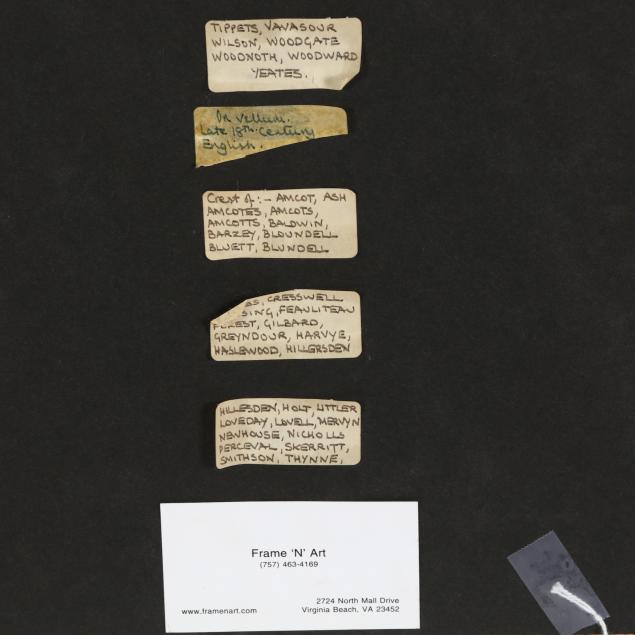 TIPPETS, VAVASOUR
WILSON, WOODGATE
WOODNOTH, WOODWARD
YEATES.
On Vellum.
Late 18th Century
English.
Crest of:- AMCOT, ASH
AMCOTES, AMCOTS,
AMCOTTS, BALDWIN,
BARZEY, BLOUNDELL
BLUETT, BLUNDELL
CRESSWELL
FEAULITEAU
GILBARD,
GREYNDOUR, HARVYE,
HASLEWOOD, HILLERSDEN
HILLESDEN, HOLT, LITTLER
LOVEDAY, LOVELL, MERVYN
NEWHOUSE, NICHOLLS
PERCEVAL, SKERRITT,
SMITHSON, THYNNE,
Frame 'N' Art
(757) 463-4169
2724 North Mall Drive
www.framenart.com Virginia Beach, VA 23452